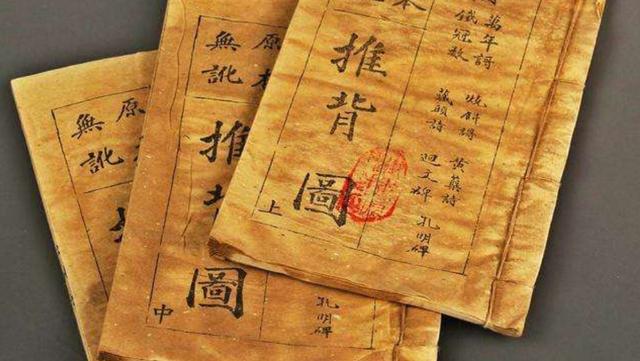 萬年詞
鐵冠數
燒餅詞
藏頭詩
黃蘗詩
迴文碑
孔明碑
本
推背圖
上
原本
無訛
推背圖
中
孔明碑
原
無訛